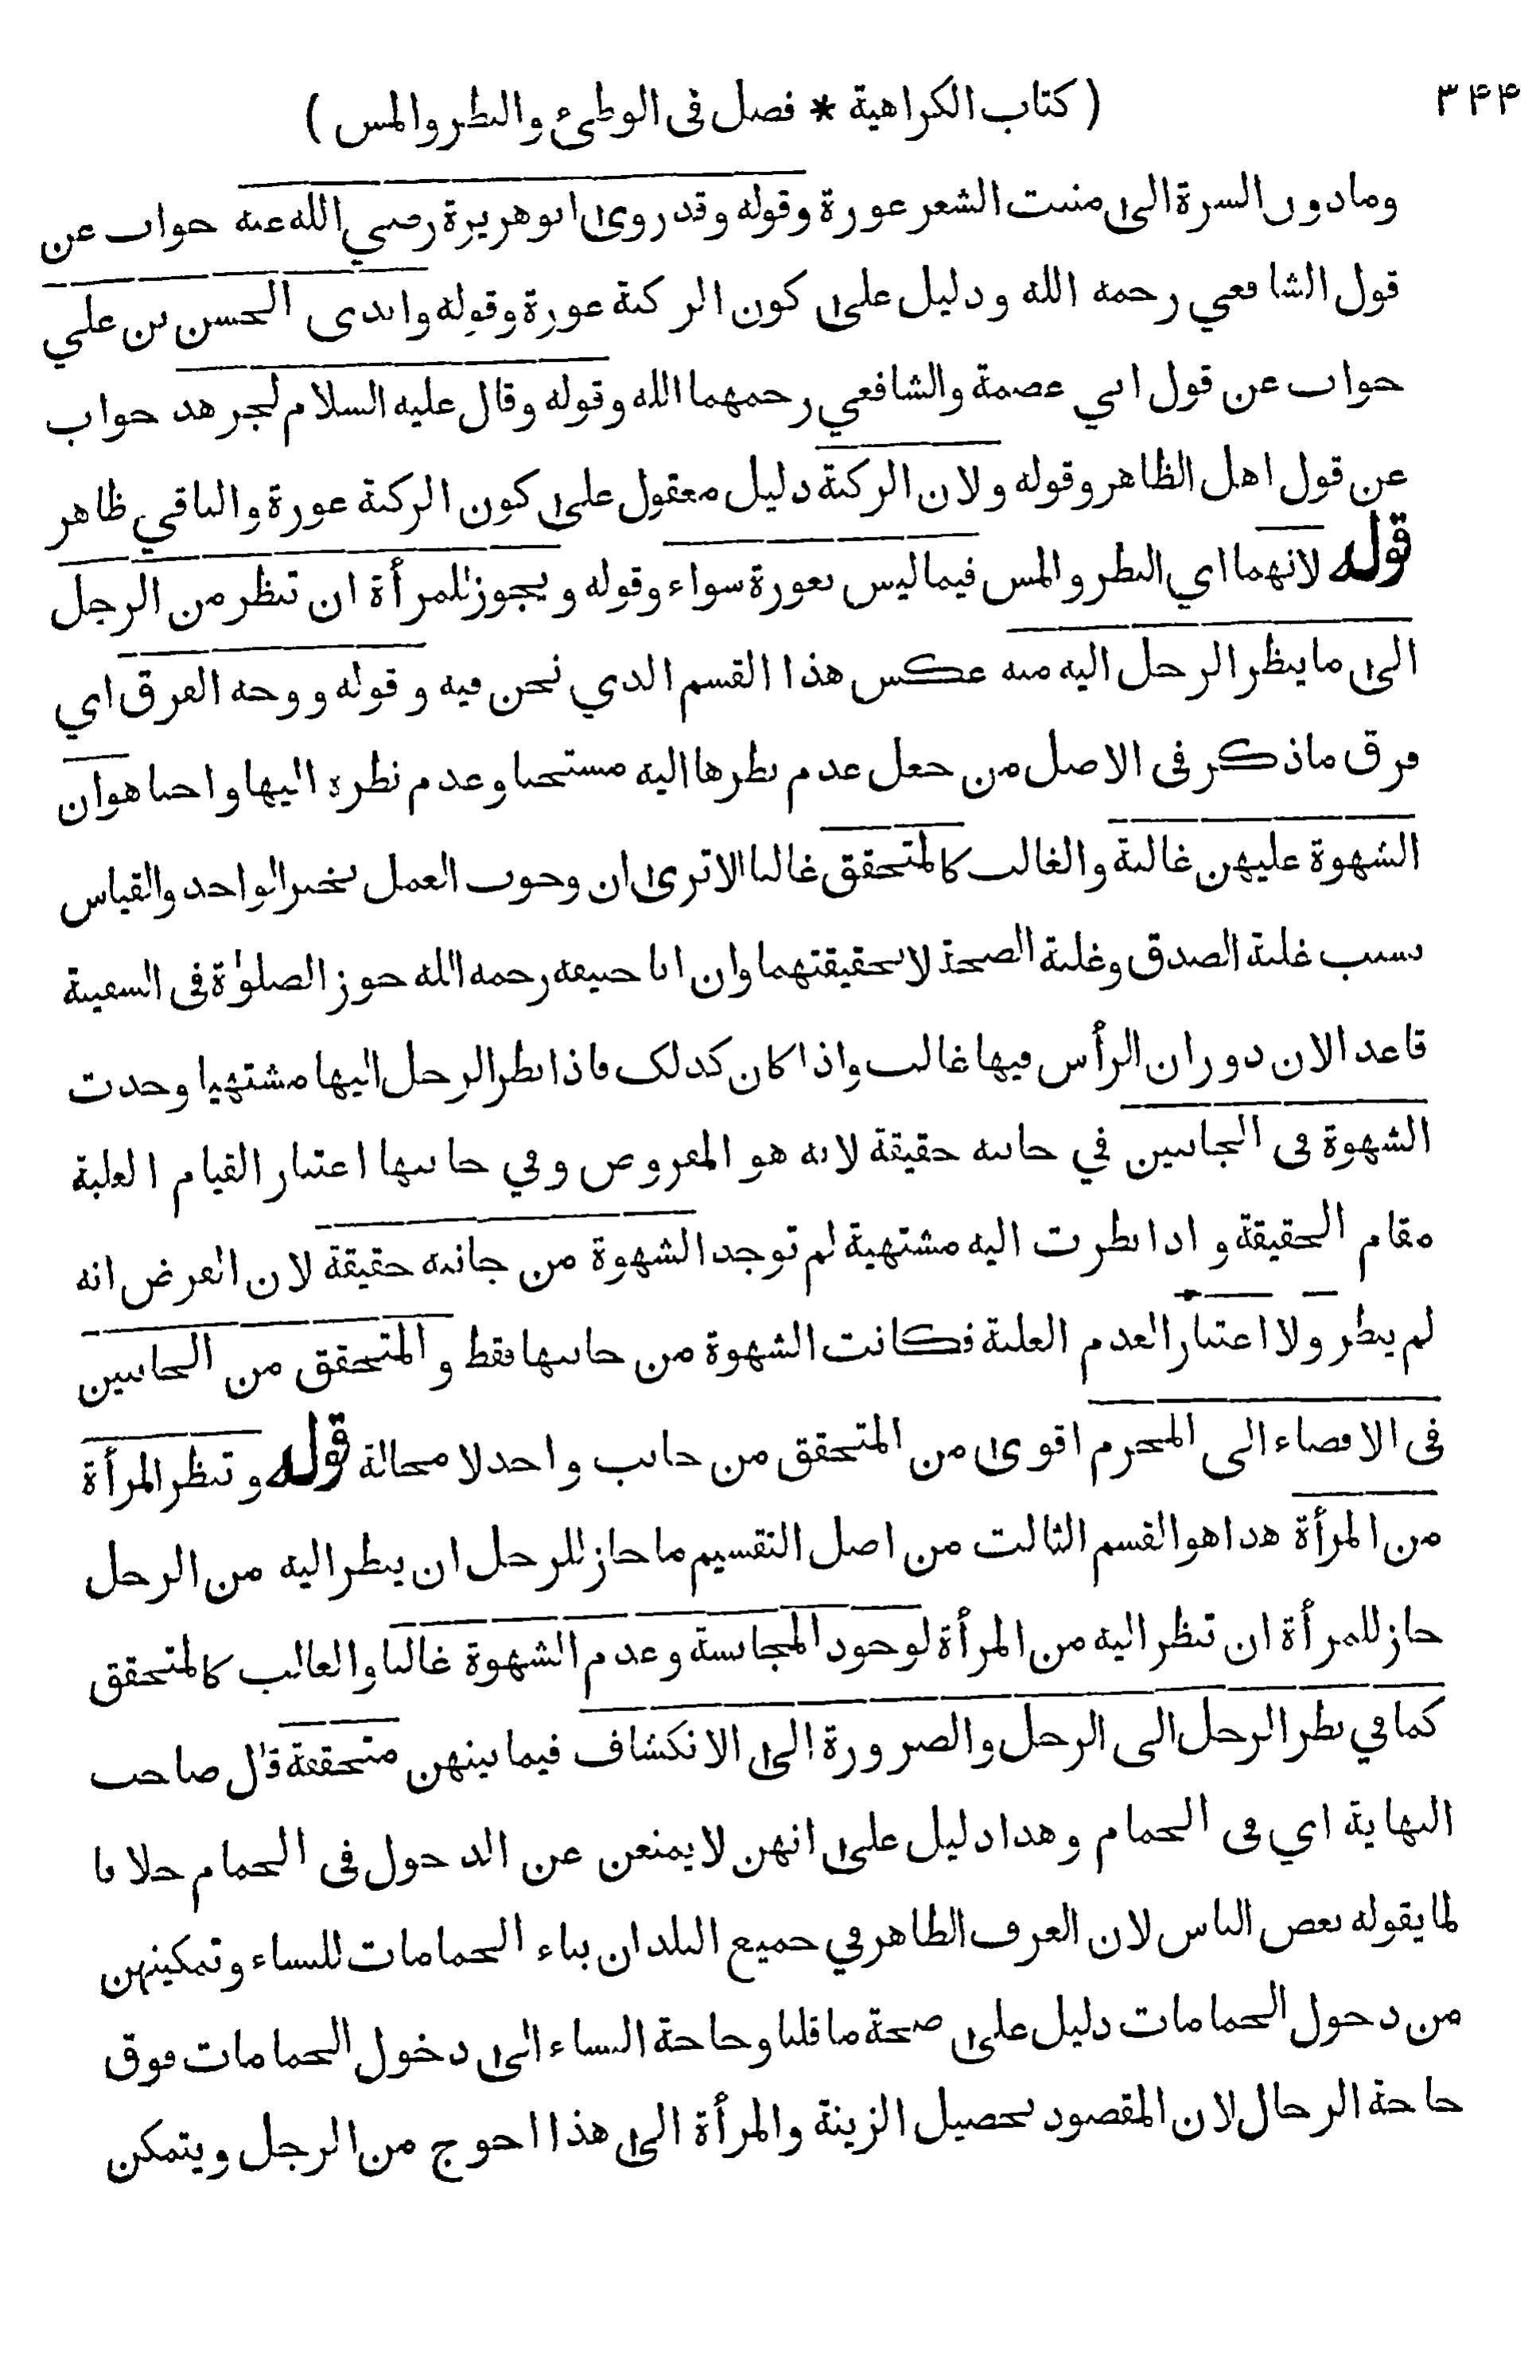 ( كتاب الكراهية * فصل فى الوطئ والنظر والمس ) ٣٤٤
ومادون السرة الى منبت الشعر عورة وقوله وقدروى ابوهريرة رضي الله عنه جواب عن
قول الشافعي رحمه الله ودليل على كون الركبة عورة وقوله وابدى الحسن بن علي
جواب عن قول ابي عصمة والشافعي رحمهما الله وقوله وقال عليه السلام لجرهد جواب
عن قول اهل الظاهر وقوله ولان الركبة دليل معقول على كون الركبة عورة والباقي ظاهر
قوله لانهما اي النظر والمس فيما ليس بعورة سواء وقوله ويجوز للمرأة ان تنظر من الرجل
الى ما ينظر الرجل اليه منه عكس هذا القسم الذي نحن فيه وقوله ووجه الفرق اي
فرق ماذكر فى الاصل من جعل عدم نظرها اليه مستحبا وعدم نظره اليها واجبا هوان
الشهوة عليهن غالبة والغالب كالمتحقق غالبا الاترى ان وجوب العمل بخبر الواحد والقياس
بسبب غلبة الصدق وغلبة الصحة لا بحقيقتهما وان ابا حنيفه رحمه الله جوز الصلوٰة فى السفينة
قاعدا لان دوران الرأس فيها غالب واذا كان كذلك فاذا نظر الرجل اليها مشتهيا وجدت
الشهوة فى الجانبين في جانبه حقيقة لانه هو المفروض وفي جانبها اعتبار القيام الغلبة
مقام الحقيقة و اذا نظرت اليه مشتهية لم توجد الشهوة من جانبه حقيقة لان الفرض انه
لم ينظر ولا اعتبار العدم الغلبة فكانت الشهوة من جانبها فقط و المتحقق من الجانبين
فى الافضاء الى المحرم اقوى من المتحقق من جانب واحد لا محالة قوله وتنظر المرأة
من المرأة هذا هو القسم الثالث من اصل التقسيم ماجاز للرجل ان ينظر اليه من الرجل
جاز للمرأة ان تنظر اليه من المرأة لوجود المجانسة وعدم الشهوة غالبا والغالب كالمتحقق
كما في نظر الرجل الى الرجل والضرورة الى الانكشاف فيما بينهن متحققة قال صاحب
النهاية اي فى الحمام وهذا دليل على انهن لا يمنعن عن الدخول فى الحمام خلافا
لما يقوله بعض الناس لان العرف الظاهر في جميع البلدان بناء الحمامات للنساء وتمكينهن
من دخول الحمامات دليل على صحة ما قلنا وحاجة النساء الى دخول الحمامات فوق
حاجة الرجال لان المقصود تحصيل الزينة والمرأة الى هذا احوج من الرجل ويتمكن